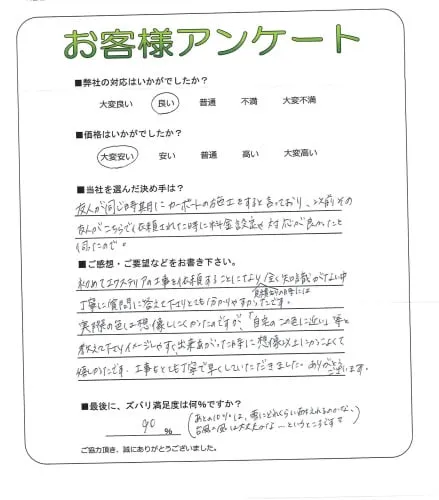 お客様アンケート
■弊社の対応はいかがでしたか?
大変良い 良い 普通 不満 大変不満
■価格はいかがでしたか?
大変安い 安い 普通 高い 大変高い
■当社を選んだ決め手は?
友人が同じ時期にカーポートの施工をすると言っており、以前その
友人がこちらで依頼された時に料金設定や対応が良かったと
伺ったので。
■ご感想・ご要望などをお書き下さい。
初めてエクステリアの工事を依頼することになり全く知識がない中
見積もりの時には
丁寧に質問に答えて下さりとても分かりやすかったです。
実際の色は想像しにくかったのですが、「自宅のこの色に近い」等と
教えて下さりイメージしやすく、出来あがった時に想像以上にかっこよくて
嬉しかったです。工事もとても丁寧で早くしていただきました。ありがとう
ございます。
■最後に、ズバリ満足度は何%ですか?
90 %
(あとの10%は、雪にどれくらい耐えれるのかな、
台風の風は大丈夫かな…というところです)
ご協力頂き、誠にありがとうございました。